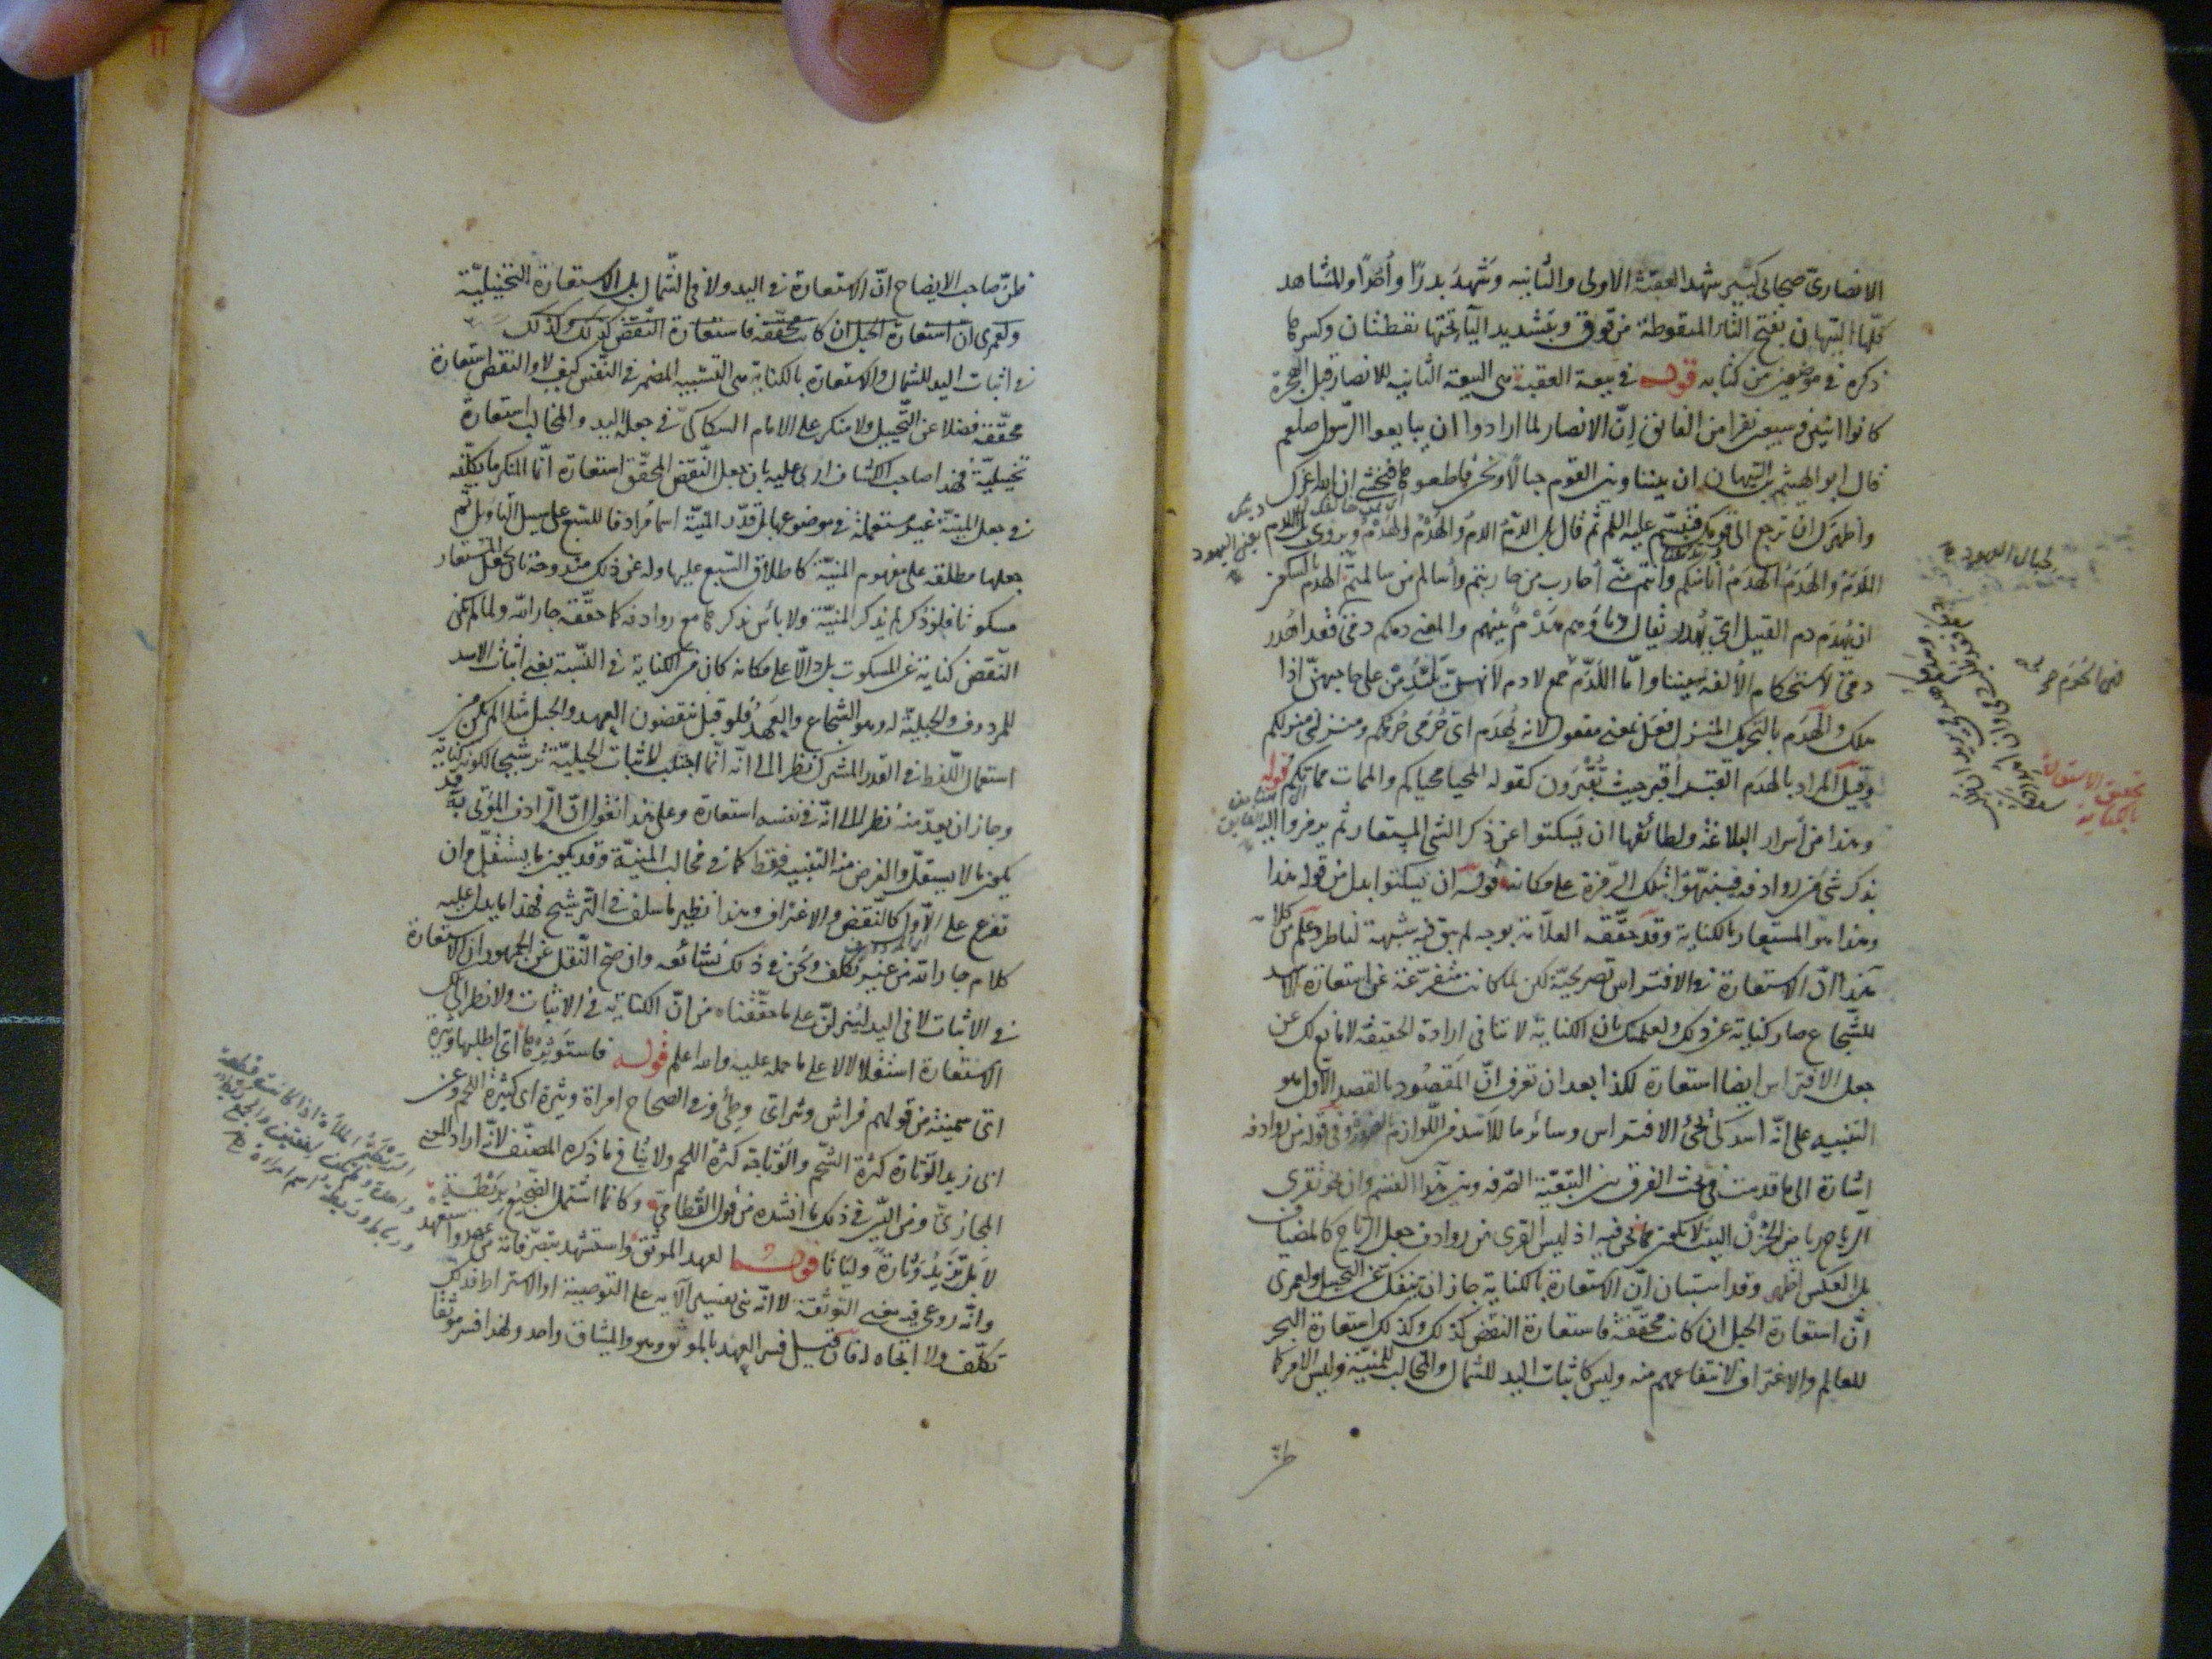 الانصاري صحابي كبير شهد العقبة الاولى والثانيه وشهد بدرا وأحدا والمشاهد
كلها التيهان بفتح التاء المنقوطة من فوق وبتشديد الياء تحتها نقطتان وكسرها
ذكره في موضعين من كتابه قوله في بيعة العقبة هي البيعة الثانيه للانصار قبل الهجرة
كانوا اثنين وسبعين نفرا من الفائق إنّ الانصار لما ارادوا ان يبايعوا الرسول صلعم
قال ابو الهيثم بن التيهان ان بيننا وبين القوم حبالا ونحن قاطعوها فنخشى ان الله اعزك
وأظهرك ان ترجع الى قومك فتبسم عليه السلم ثم قال بل الدم الدم والهدم الهدم ويروى بل اللدم
اللدم والهدم الهدم انا منكم وانتم منّي أحارب من حاربتم وأسالم من سالمتم الهدم بالسكون
ان يهدم دم القتيل اي يهدر يقال دماؤهم هدم بينهم والمعنى دمكم دمي فقد اهدر
دمي لاستحكام الألفة بيننا وامّا اللدم جمع لادم لانهن يلتدمن على صاحبهن اذا
هلك والهدم بالتحريك المنزل فعل بمعنى مفعول لانه يهدم اي حرمي حرمكم ومنزلي منزلكم
وقيل المراد بالهدم القبر أقبر حيث تقبرون كقوله المحيا محياكم والممات مماتكم قوله
وهذا من أسرار البلاغة ولطائفها ان يسكتوا عن ذكر الشي المستعار ثم يرمزوا اليه
بذكر شي من روادفه فينبهوا بتلك الرمزة على مكانه قوله ان يسكتوا بدل من قوله هذا
وهذا هو المستعار بالكناية وقد حققه العلامة بوجه لم يبق فيه شبهة لناظر
هذا ان الاستعارة في الافتراس تصريحية لكن لما كانت متفرعة عن استعارة الاسد
للشجاع صار كناية عن ذلك ولعلمك بان الكناية لا تنافي ارادة الحقيقة لا مانع لك عن
جعل الافتراس ايضا استعارة لكذا بعد ان تعرف انّ المقصود بالقصد الاول هو
التنبيه على انّه اسد كي تجئ الافتراس وسائر ما للاسد من اللوازم وفي قوله من روادفه
اشارة الى ما قدمت في بحث الفرق بين التبعية الصرفة وبين هذا القسم وان نحو تقري
الرياح رياض الحزن البيت لا يكون مما نحن فيه اذ ليس القرى من روادف جعل الرياح كالمضياف
بل العكس اظهر وقد استبان انّ الاستعارة بالكناية جاز ان تنفك عن التخييل ولعمري
انّ استعارة الحبل ان كانت محققة فاستعارة النقض كذلك وكذلك استعارة البحر
للعالم والاغتراف لانتفاعهم منه وليس كاثبات اليد للشمال والمخالب للمنية وليس الامر كما
تحقيق الاستعارة
بالكناية
ظنّ صاحب الايضاح انّ الاستعارة في اليد ولا في الشمال بل الاستعارة التخييليّة
ولعمرى ان استعارة الحبل ان كانت محققة فاستعارة النقض كذلك وكذلك
في اثبات اليد للشمال والاستعارة بالكناية هي التشبيه المضمر في النفس كيف لا والنقض استعارة
محققة فضلا عن التخييل ولا منكر على الامام السكاكي في جعله اليد والمخالب استعارة
تخييلية فهذا صاحب الكشاف اربى عليه بان جعل النقض المحقق استعارة انما المنكر ما يكلفه
في جعل المنية غير مستعملة في موضوعها بل قدّر المنية اسما مرادفا للسبع على سبيل التأويل ثم
جعلها مطلقة على مفهوم المنية كاطلاق السبع عليها وله عن ذلك مندوحة بان يجعل المستعار
مسكوتا فلو ذكر لم يذكر المنيّة ولا بأس بذكرها مع روادفه كما حققه جار الله ولما لم يكن
النقض كناية عن المسكوت بل دالا على مكانه كان من الكناية في النسبة يعني اثبات الاسد
للمردوف والحبلية له وهو الشجاع والعهد فلو قيل ينقضون العهد والحبل مثلا لم يكن من
استعمال اللفظ في القدر المشترك نظرا الى انه انما اجتلب لاثبات الحبلية ثم ترشيحا لكونه كناية
وجاز ان يعد منه نظرا الى انه في نفسه استعارة وعلى هذا نقول ان الرادف المؤتى به قد
يكون ما لا يستقل والغرض منه التنبيه فقط كما في مخالب المنية وقد يكون ما يستقل وان
تفرع على الاول كالنقض والاغتراف وهذا نظير ما سلف في الترشيح فهذا ما يدل عليه
كلام جار الله من غير تكلف ونحن في ذلك نشائعه وان صح النقل عن الجمهور ان الاستعارة
في الاثبات لا في اليد لينزلن على ما حققناه من ان الكناية في الاثبات ولا نظر الى تلك
الاستعارة استقلالا لا على ما حمله عليه والله اعلم قوله فاستوثرها اي اطلبها وثيرة
اي سمينة من قولهم فراش وثير اي وطئ وفي الصحاح امراة وثيرة اي كثيرة اللحم وعن
ابي زيد الوثارة كثرة الشحم والوثاجة كثرة اللحم ولا ينافي ما ذكره المصنف لانه اراد المعنى
المجازي ومن البين في ذلك ما انشده من قول القطامي وكانما اشتمل الضجيع بريطة
لا بل تزيد وثارة وليانا قوله لعهد الموثق واستشهد بتصرفاته
وانّه روعي فيه معنى التوثقة لا انّه بنى تفسير الآية على التوصية او الاشتراط فذلك
تكلف ولا اتجاه له فان قيل فسر العهد بالموثق وهو والميثاق واحد ولهذا فسر موثقا